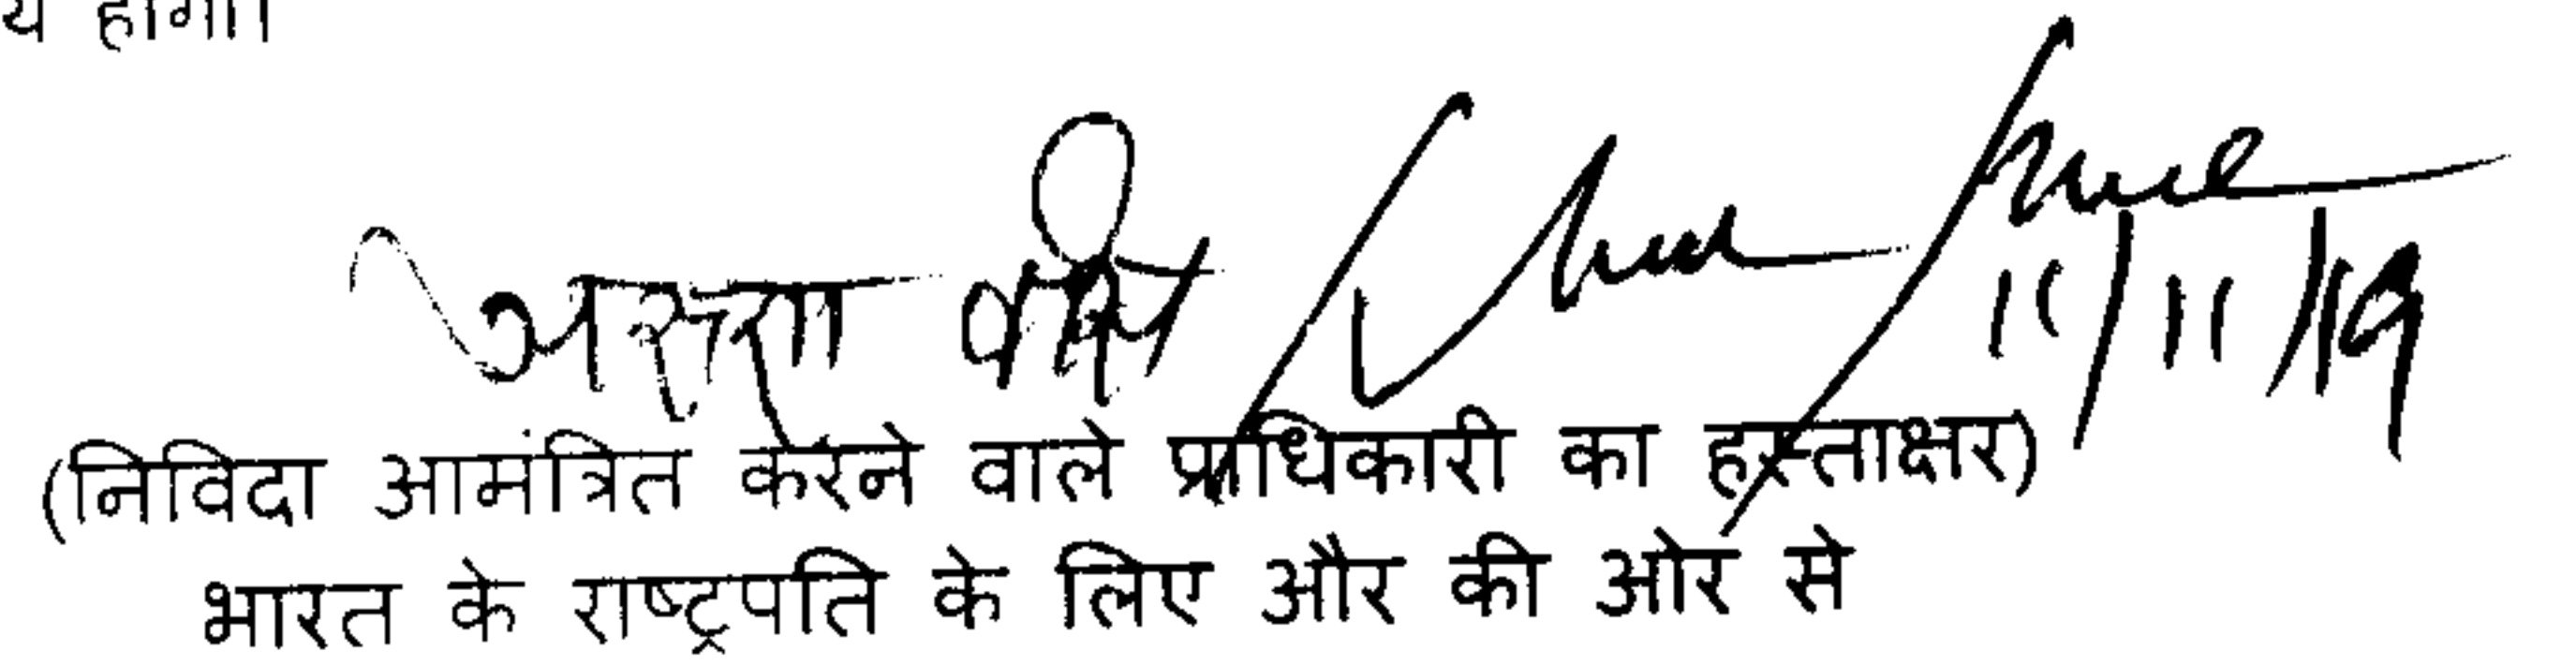 होगा।
11/11/19
(निविदा आमंत्रित करने वाले प्राधिकारी का हस्ताक्षर)
भारत के राष्ट्रपति के लिए और की ओर से